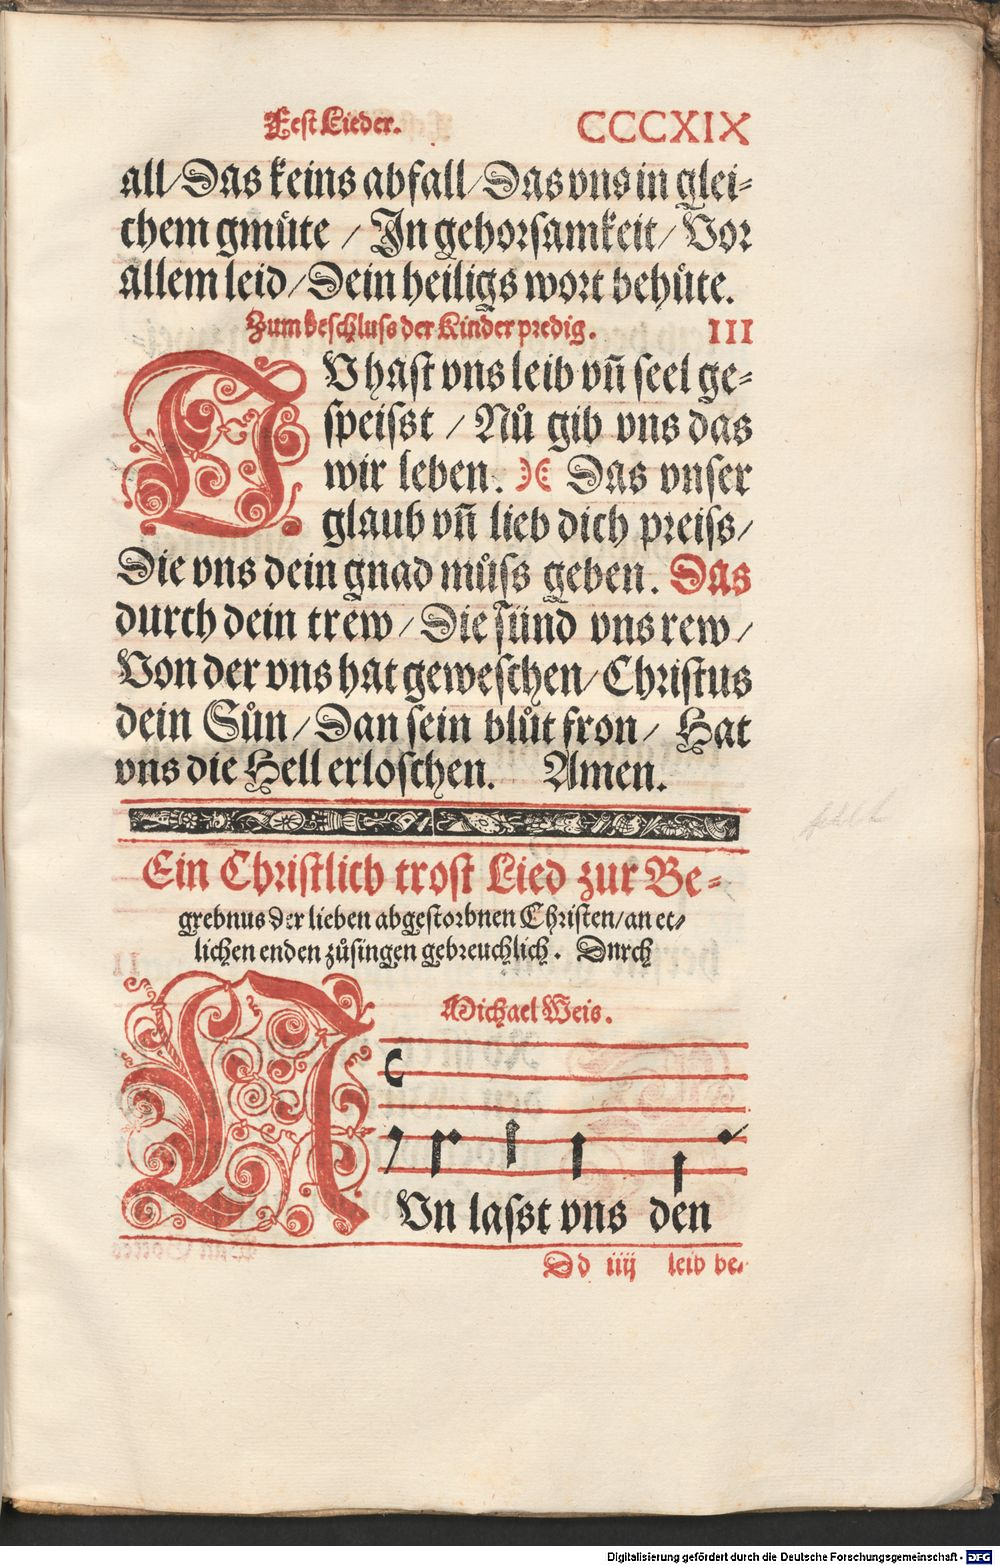 Fest Lieder. CCCXIX
all/Das keins abfall/Das vns in glei-
chem gmuͤte / In gehorsamkeit/ Vor
allem leid/Dein heiligs wort behuͤte.
Zum beschluss der Kinder predig. III
DV hast vns leib vñ seel ge-
speisst / Nuͦ gib vns das
wir leben. Das vnser
glaub vñ lieb dich preiss/
Die vns dein gnad muͤss geben. Das
durch dein trew/Die sünd vns rew/
Von der vns hat geweschen/Christus
dein Suͦn/Dan sein bluͦt fron/ Hat
vns die Hell erloschen. Amen.
Ein Christlich trost Lied zur Be-
grebnus der lieben abgestorbnen Christen/an et-
lichen enden zuͦsingen gebreuchlich. Durch
Michael Weis.
NVn lasst vns den
Dd iiij leib be-
Digitalisierung gefördert durch die Deutsche Forschungsgemeinschaft - DFG